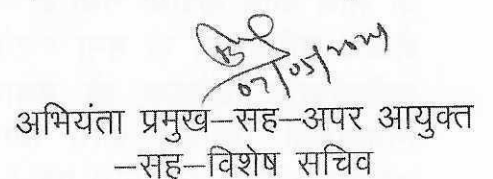 07/05/2024
अभियंता प्रमुख–सह–अपर आयुक्त
–सह–विशेष सचिव